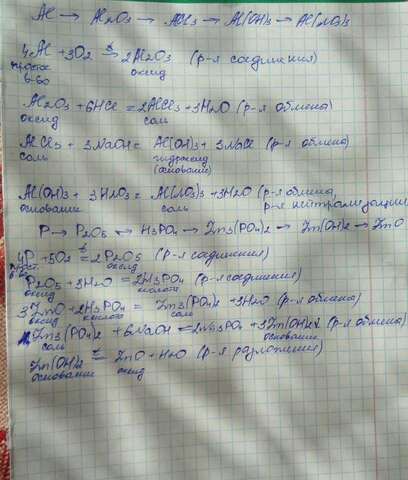 Al → Al2O3 → AlCl3 → Al(OH)3 → Al(NO3)3
4Al + 3O2 t= 2Al2O3 (р-я соединения)
простое в-во оксид
Al2O3 + 6HCl = 2AlCl3 + 3H2O (р-я обмена)
оксид соль
AlCl3 + 3NaOH = Al(OH)3 + 3NaCl (р-я обмена)
соль гидроксид
(основание)
Al(OH)3 + 3HNO3 = Al(NO3)3 + 3H2O (р-я обмена,
основание соль р-я нейтрализации
P → P2O5 → H3PO4 → Zn3(PO4)2 → Zn(OH)2 → ZnO
4P + 5O2 t= 2P2O5 (р-я соединения)
прост. в-во оксид
P2O5 + 3H2O = 2H3PO4 (р-я соединения)
оксид кислота
3ZnO + 2H3PO4 = Zn3(PO4)2 + 3H2O (р-я обмена)
оксид кислота соль
Zn3(PO4)2 + 6NaOH = 2Na3PO4 + 3Zn(OH)2 (р-я обмена)
соль основание
Zn(OH)2 t= ZnO + H2O (р-я разложения)
основание оксид